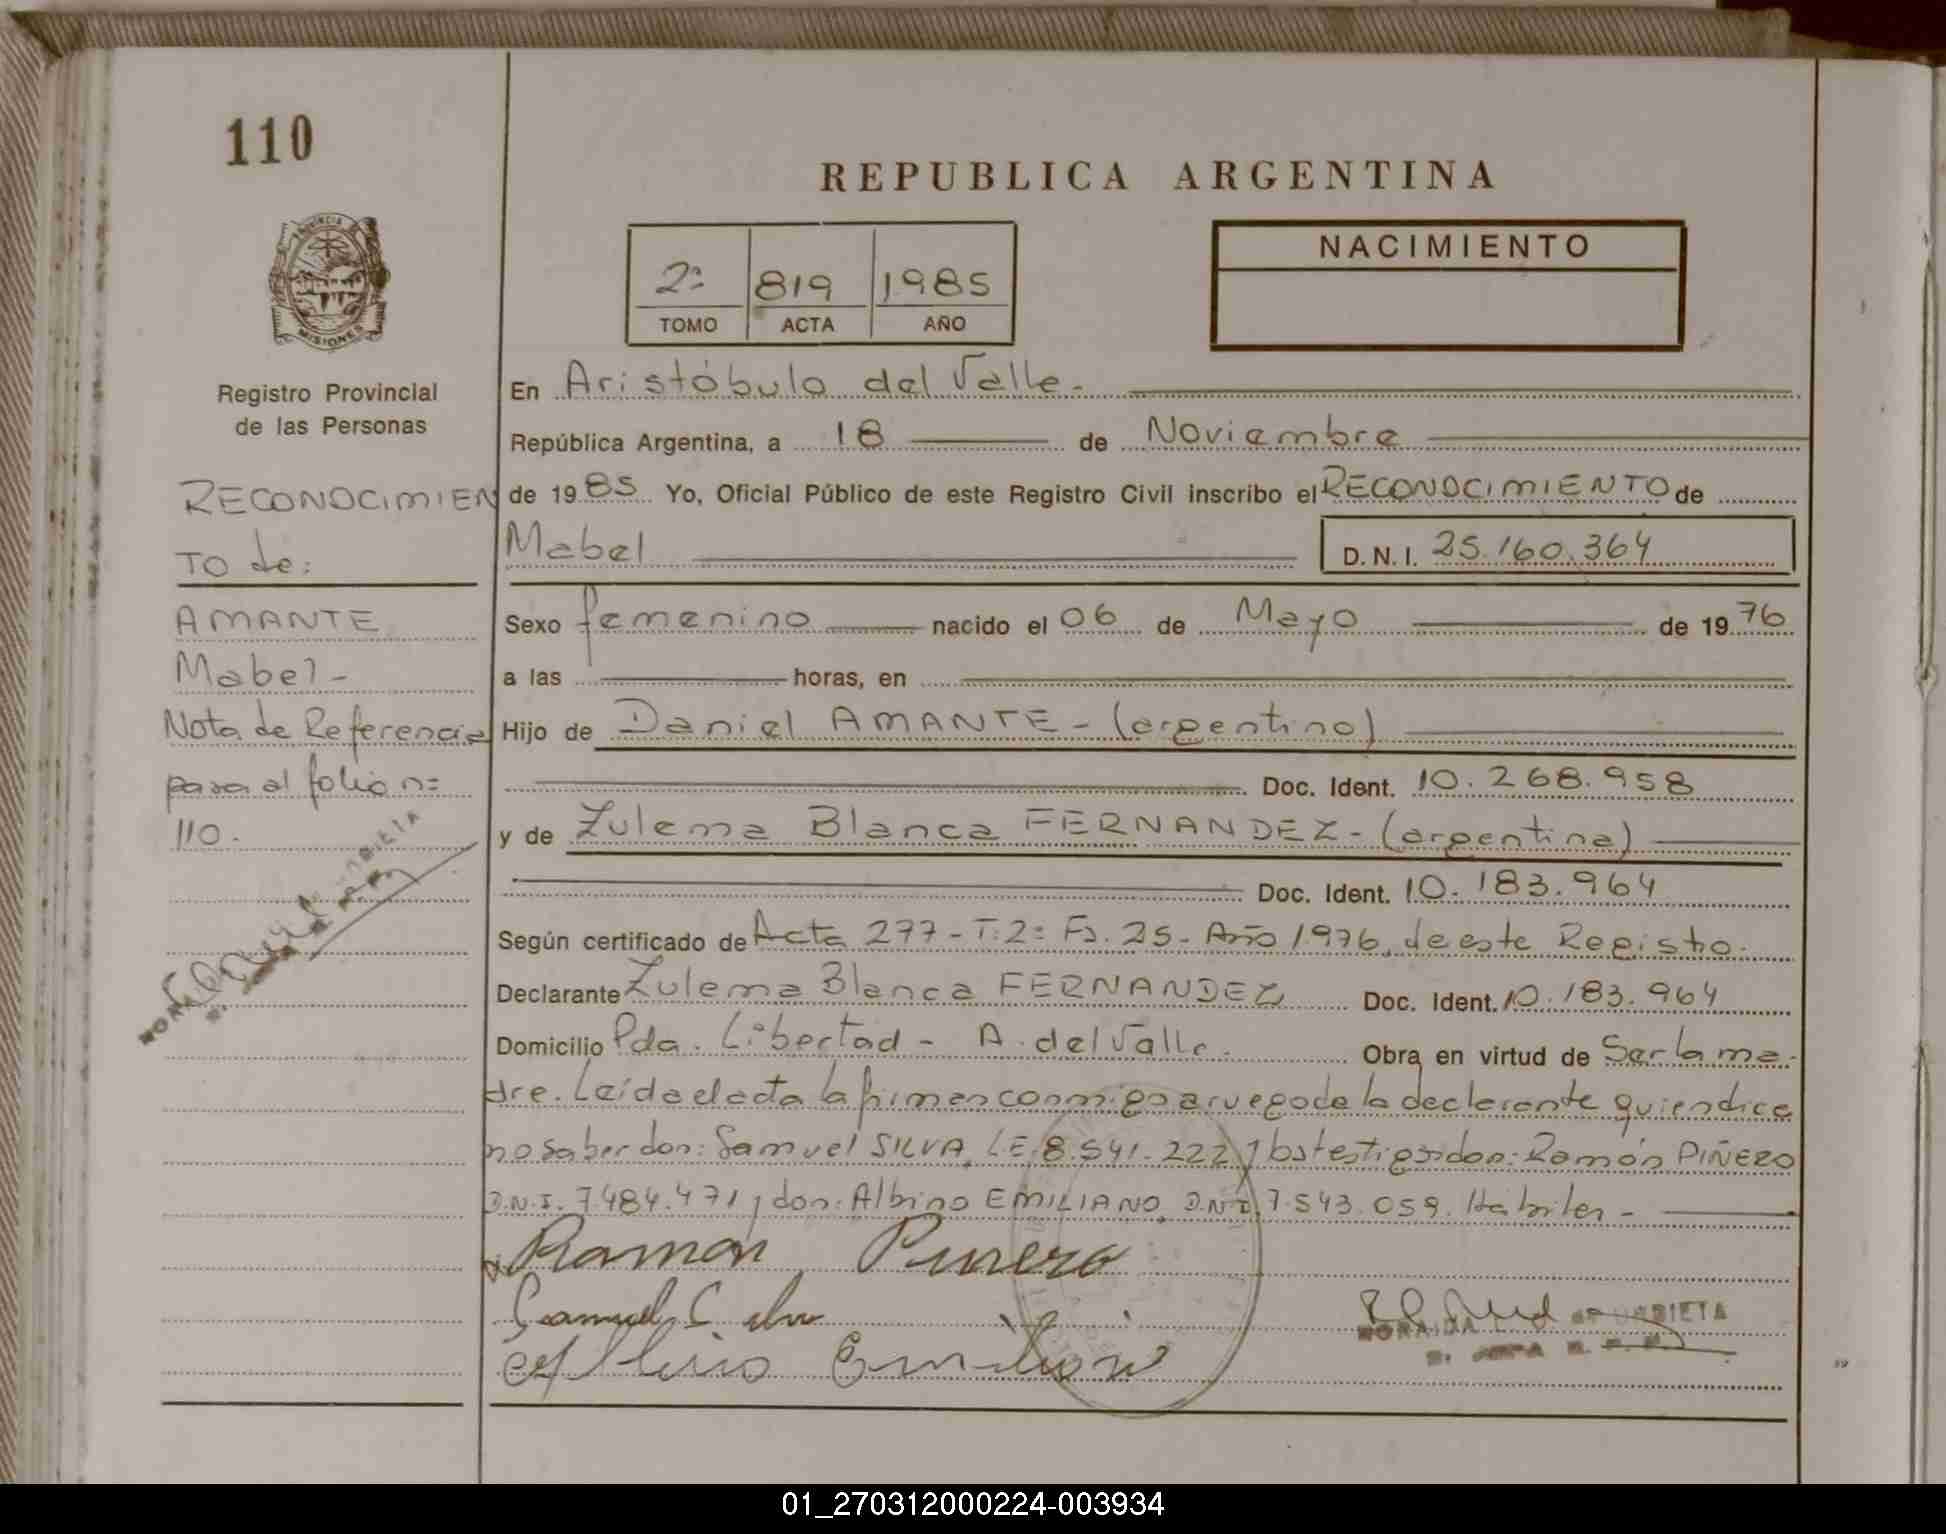 110
REPUBLICA ARGENTINA
PROVINCIA
MISIONES
2º 819 1985
TOMO ACTA AÑO
NACIMIENTO
Registro Provincial
de las Personas
En Aristóbulo del Valle.
República Argentina, a 18 de Noviembre
de 1985 Yo, Oficial Público de este Registro Civil inscribo el RECONOCIMIENTO de
Mabel D.N.I. 25.160.364
Sexo femenino nacido el 06 de Mayo de 1976
a las horas, en
Hijo de Daniel AMANTE - (argentino)
Doc. Ident. 10.268.958
y de Zulema Blanca FERNANDEZ - (argentina)
Doc. Ident. 10.183.964
Según certificado de Acta 277 - T:2º Fs. 25 - Año 1976, de este Registro.
Declarante Zulema Blanca FERNANDEZ Doc. Ident. 10.183.964
Domicilio Pda. Libertad - A. del Valle. Obra en virtud de Ser la ma-
dre. Leida el acta la firman conmigo a ruego de la declarante quien dice
no saber don: Samuel SILVA, L.E. 8.541.222 y los testigos don: Ramón PIÑERO
D.N.I. 7.484.471 y don: Albino EMILIANO, D.N.I. 7.543.059. Hábiles -
Ramon Pinero
RECONOCIMIEN
TO de:
AMANTE
Mabel -
Nota de Referencia
pasa al folio nº
110.
01_270312000224-003934